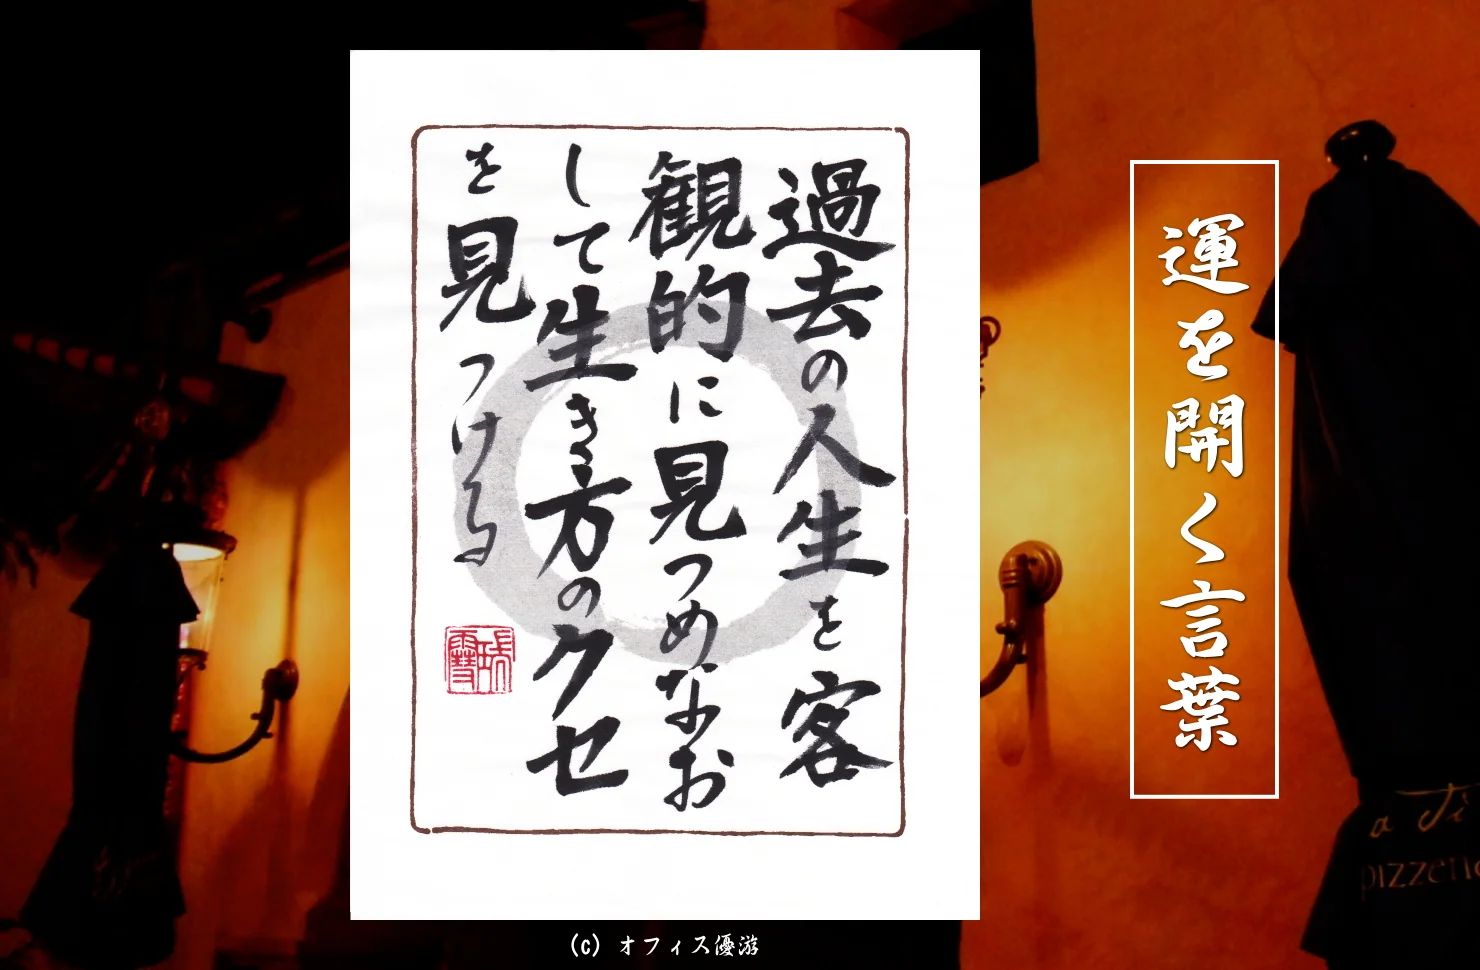 運を開く言葉
過去の人生を客
観的に見つめなお
して生き方のクセ
を見つける
(c) オフィス優游
pizzeria